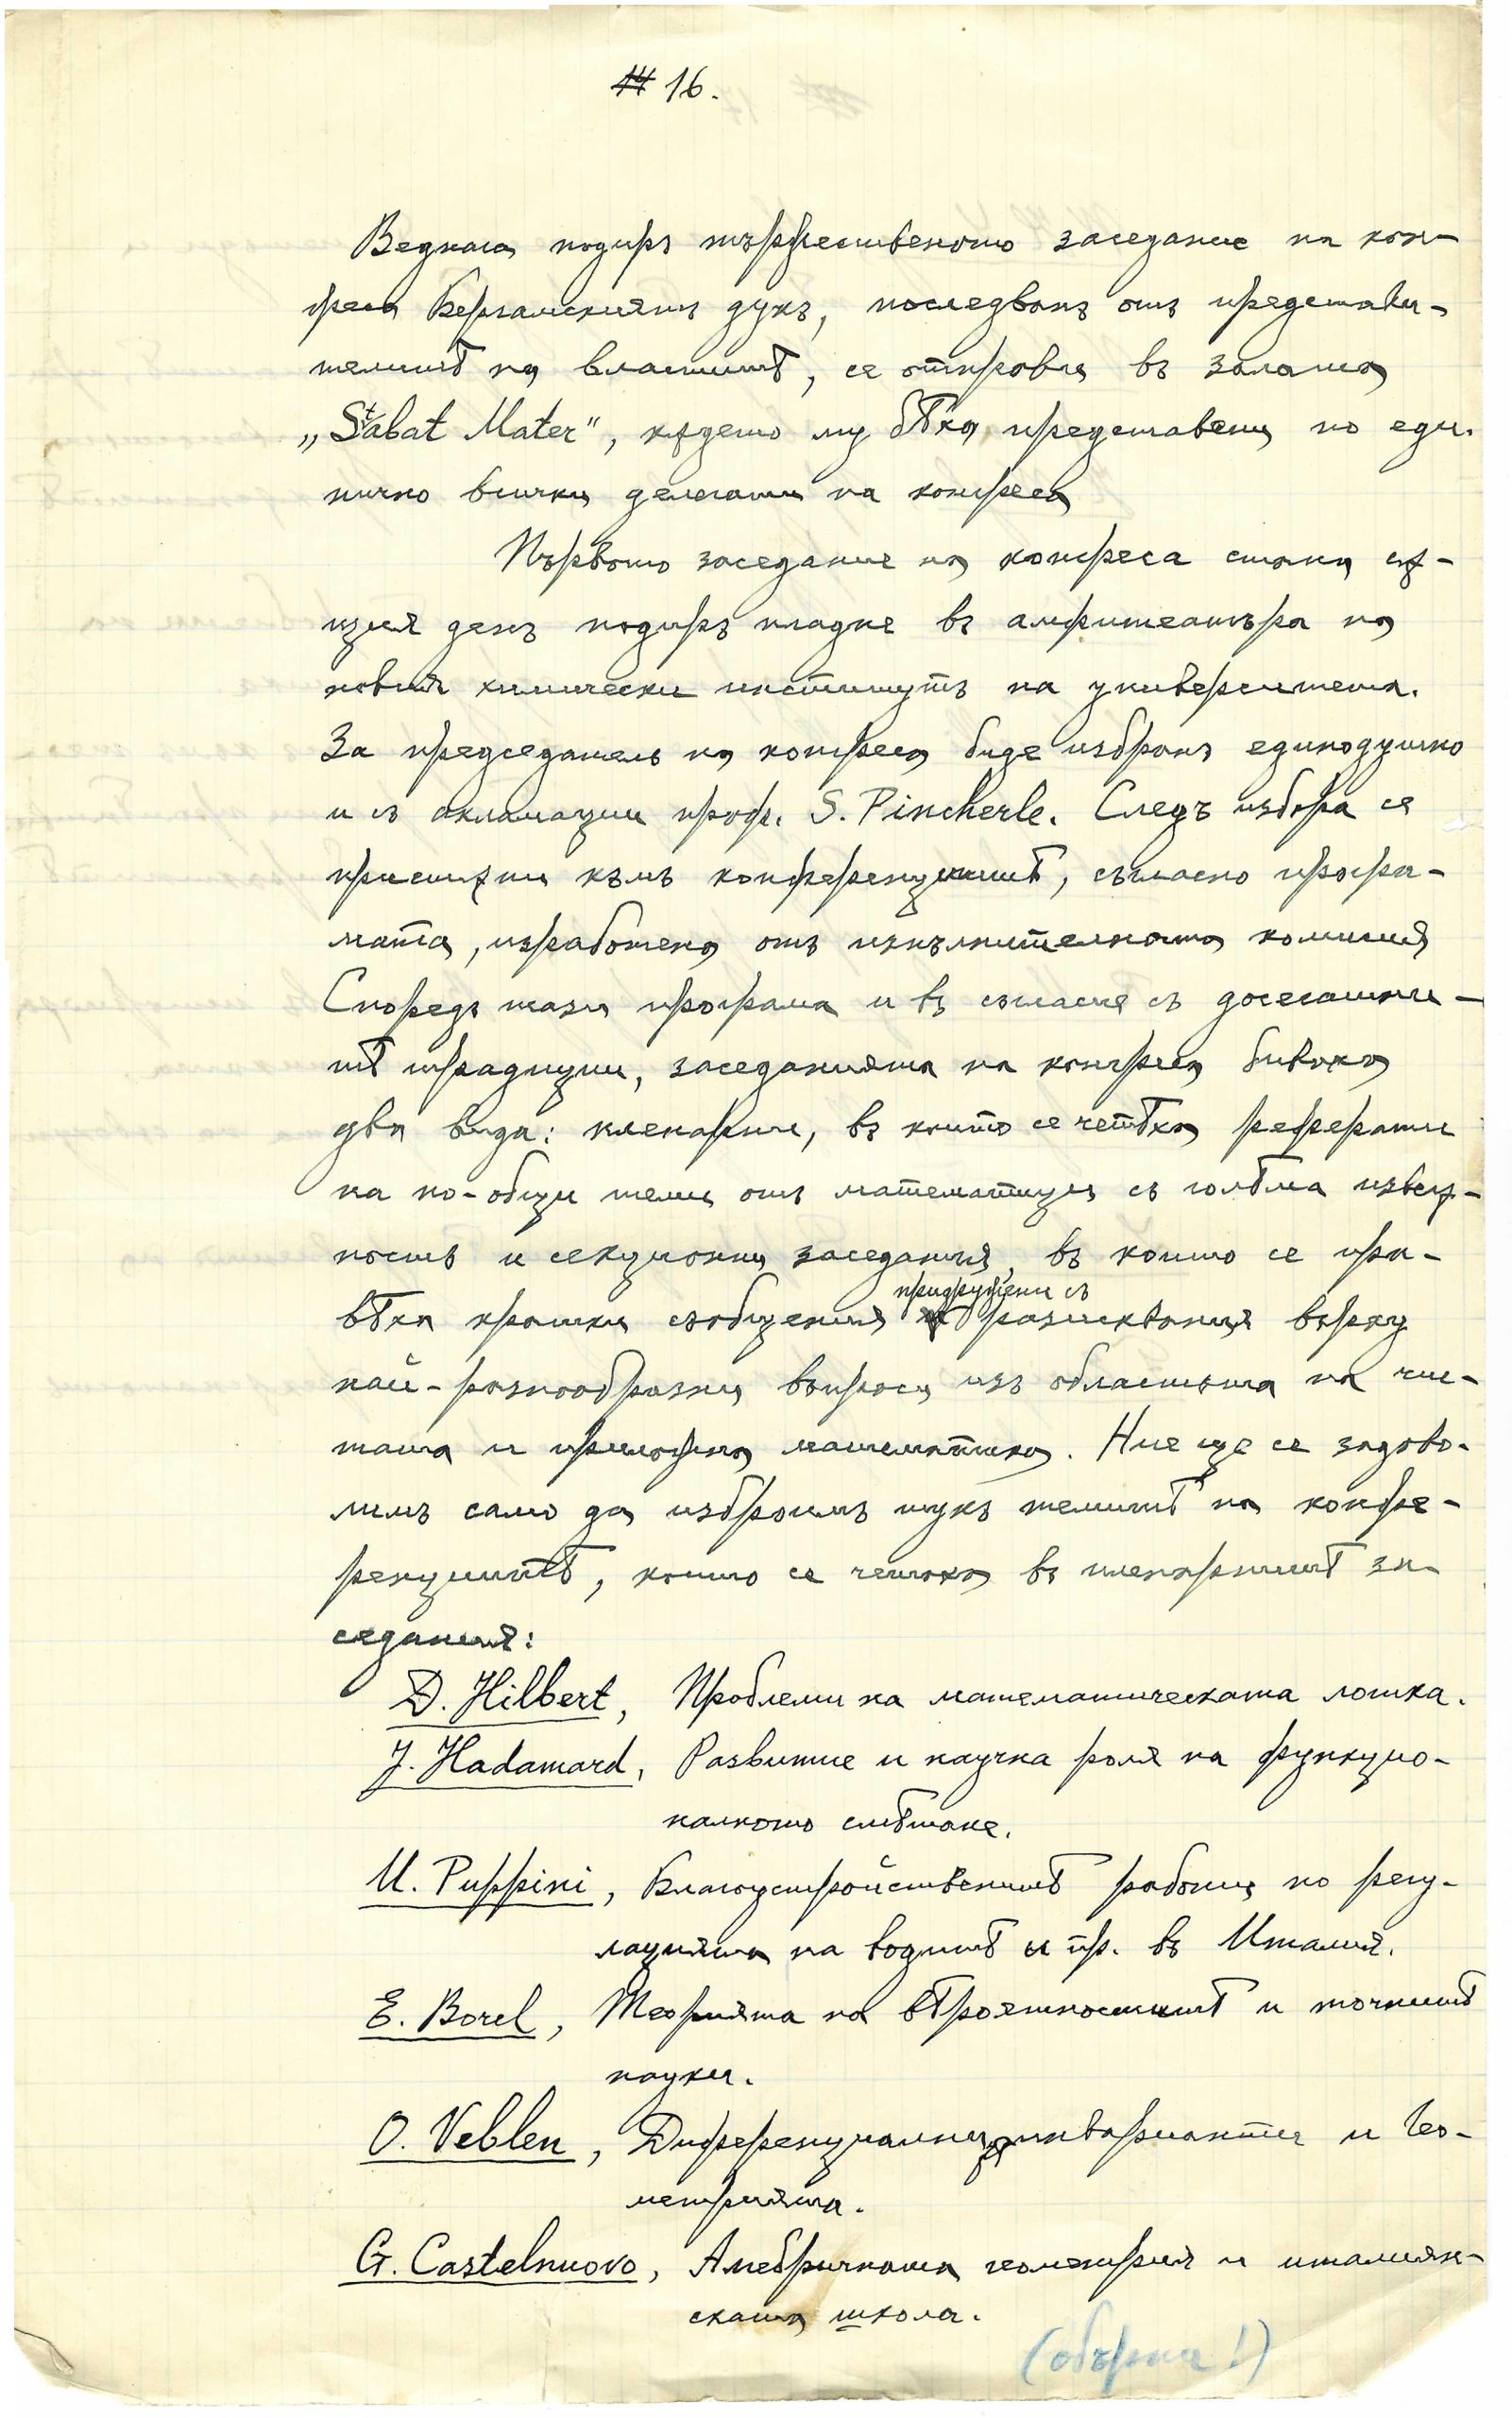 16.
Веднага подиръ тържественото заседание на кон-
греса Бергамскиятъ дукъ, последванъ отъ представи-
телитѣ на властитѣ, се отправи въ залата
„Stabat Mater", кѫдето му бѣха представени по еди-
нично всички делегати на конгреса
Първото заседание на конгреса стана сѫ-
щия день подиръ пладне въ амфитеатъра на
новия химически институтъ на университета.
За председатель на конгреса биде избранъ единодушно
и съ акламации проф. S. Pincherle. Следъ избора се
пристѫпи къмъ конференциитѣ, съгласно програ-
мата, изработена отъ изпълнителната комисия
Споредъ тази програма и въ съгласие съ досегашни-
тѣ традиции, заседанията на конгреса биваха
два вида: пленарни, въ които се четѣха реферати
на по-общи теми отъ математици съ голѣма извест-
ность и секционни заседания, въ които се пра-
вѣха кратки съобщения придружени съ разисквания върху
най-разнообразни въпроси изъ областьта на чис-
тата и приложна математика. Ние ще се задово-
лимъ само да изброимъ тукъ темитѣ на конфе-
ренциитѣ, които се четоха въ пленарнитѣ за-
седания:
D. Hilbert, Проблеми на математическата логика.
J. Hadamard, Развитие и научна роля на функцио-
налното смѣтане.
U. Puppini, Благоустройственитѣ работи по регу-
лацията на водитѣ и пр. въ Италия.
E. Borel, Теорията на вѣроятноститѣ и точнитѣ
науки.
O. Veblen, Диференциални инварианти и Гео-
метрията.
G. Castelnuovo, Алгебричната геометрия и италиян-
ската школа.
(обърни!)